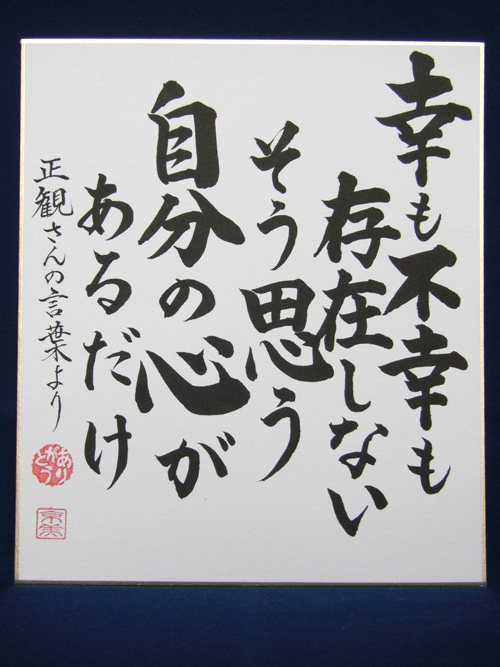 幸も不幸も
存在しない
そう思う
自分の心が
あるだけ
正観さんの言葉より
ありがとう